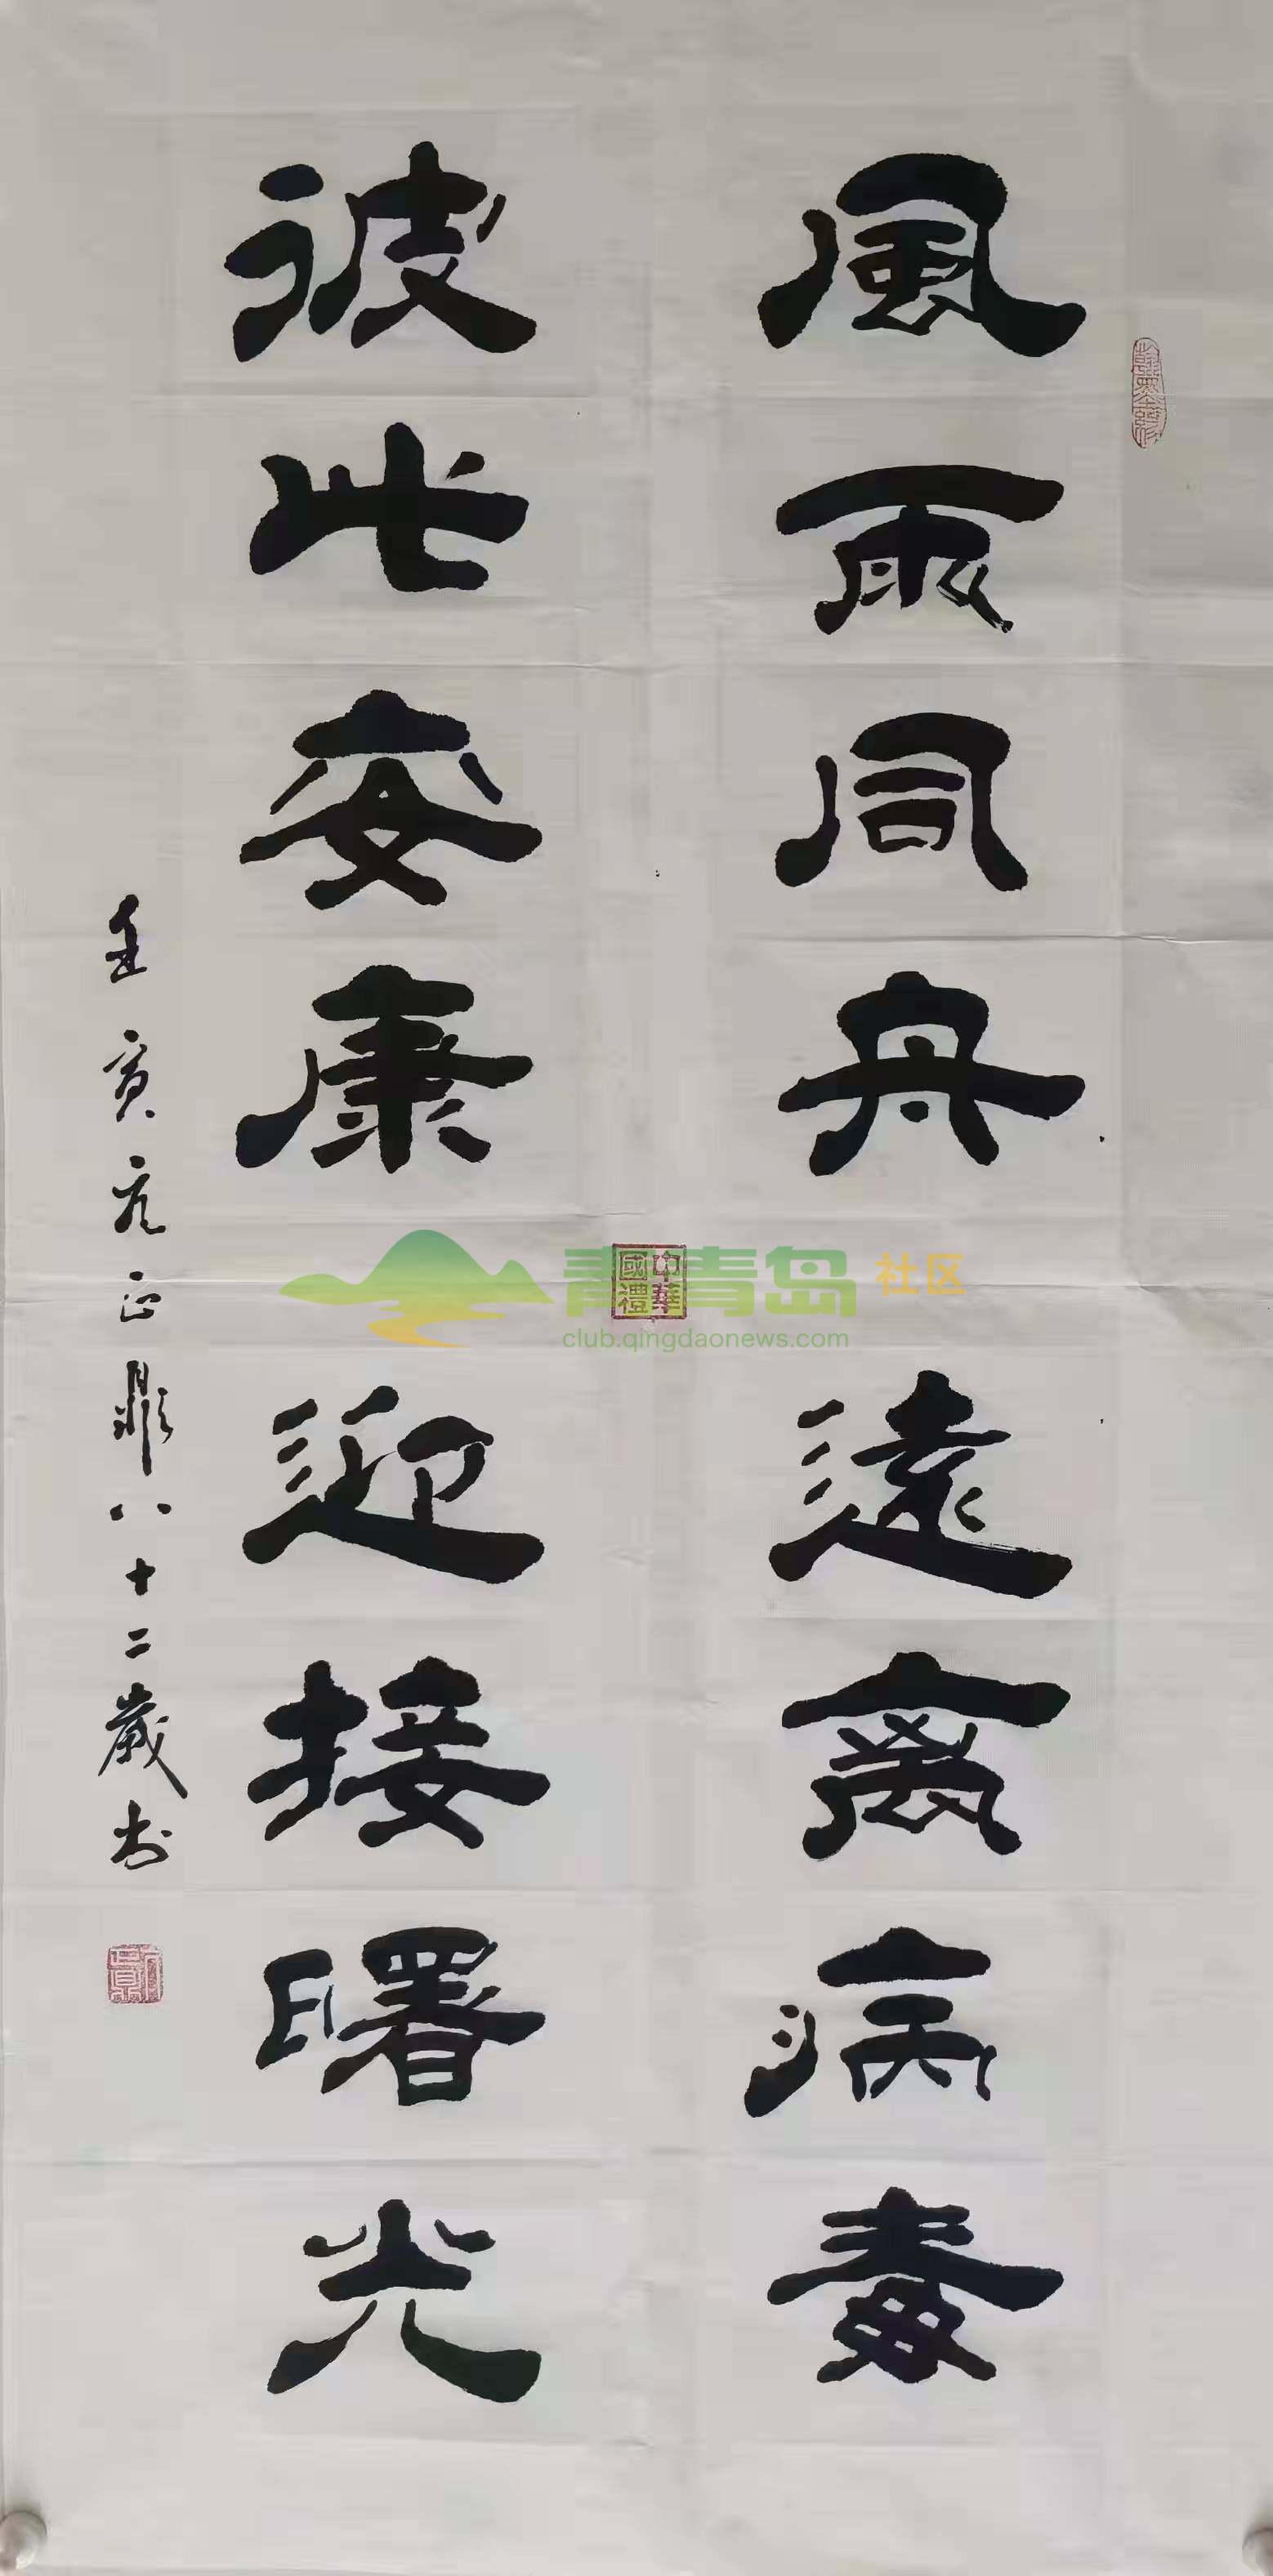 風雨同舟 遠离病毒
彼此安康 迎接曙光
壬寅亢正鼎八十二歲书
中華國禮
青青岛社区
club.qingdaonews.com